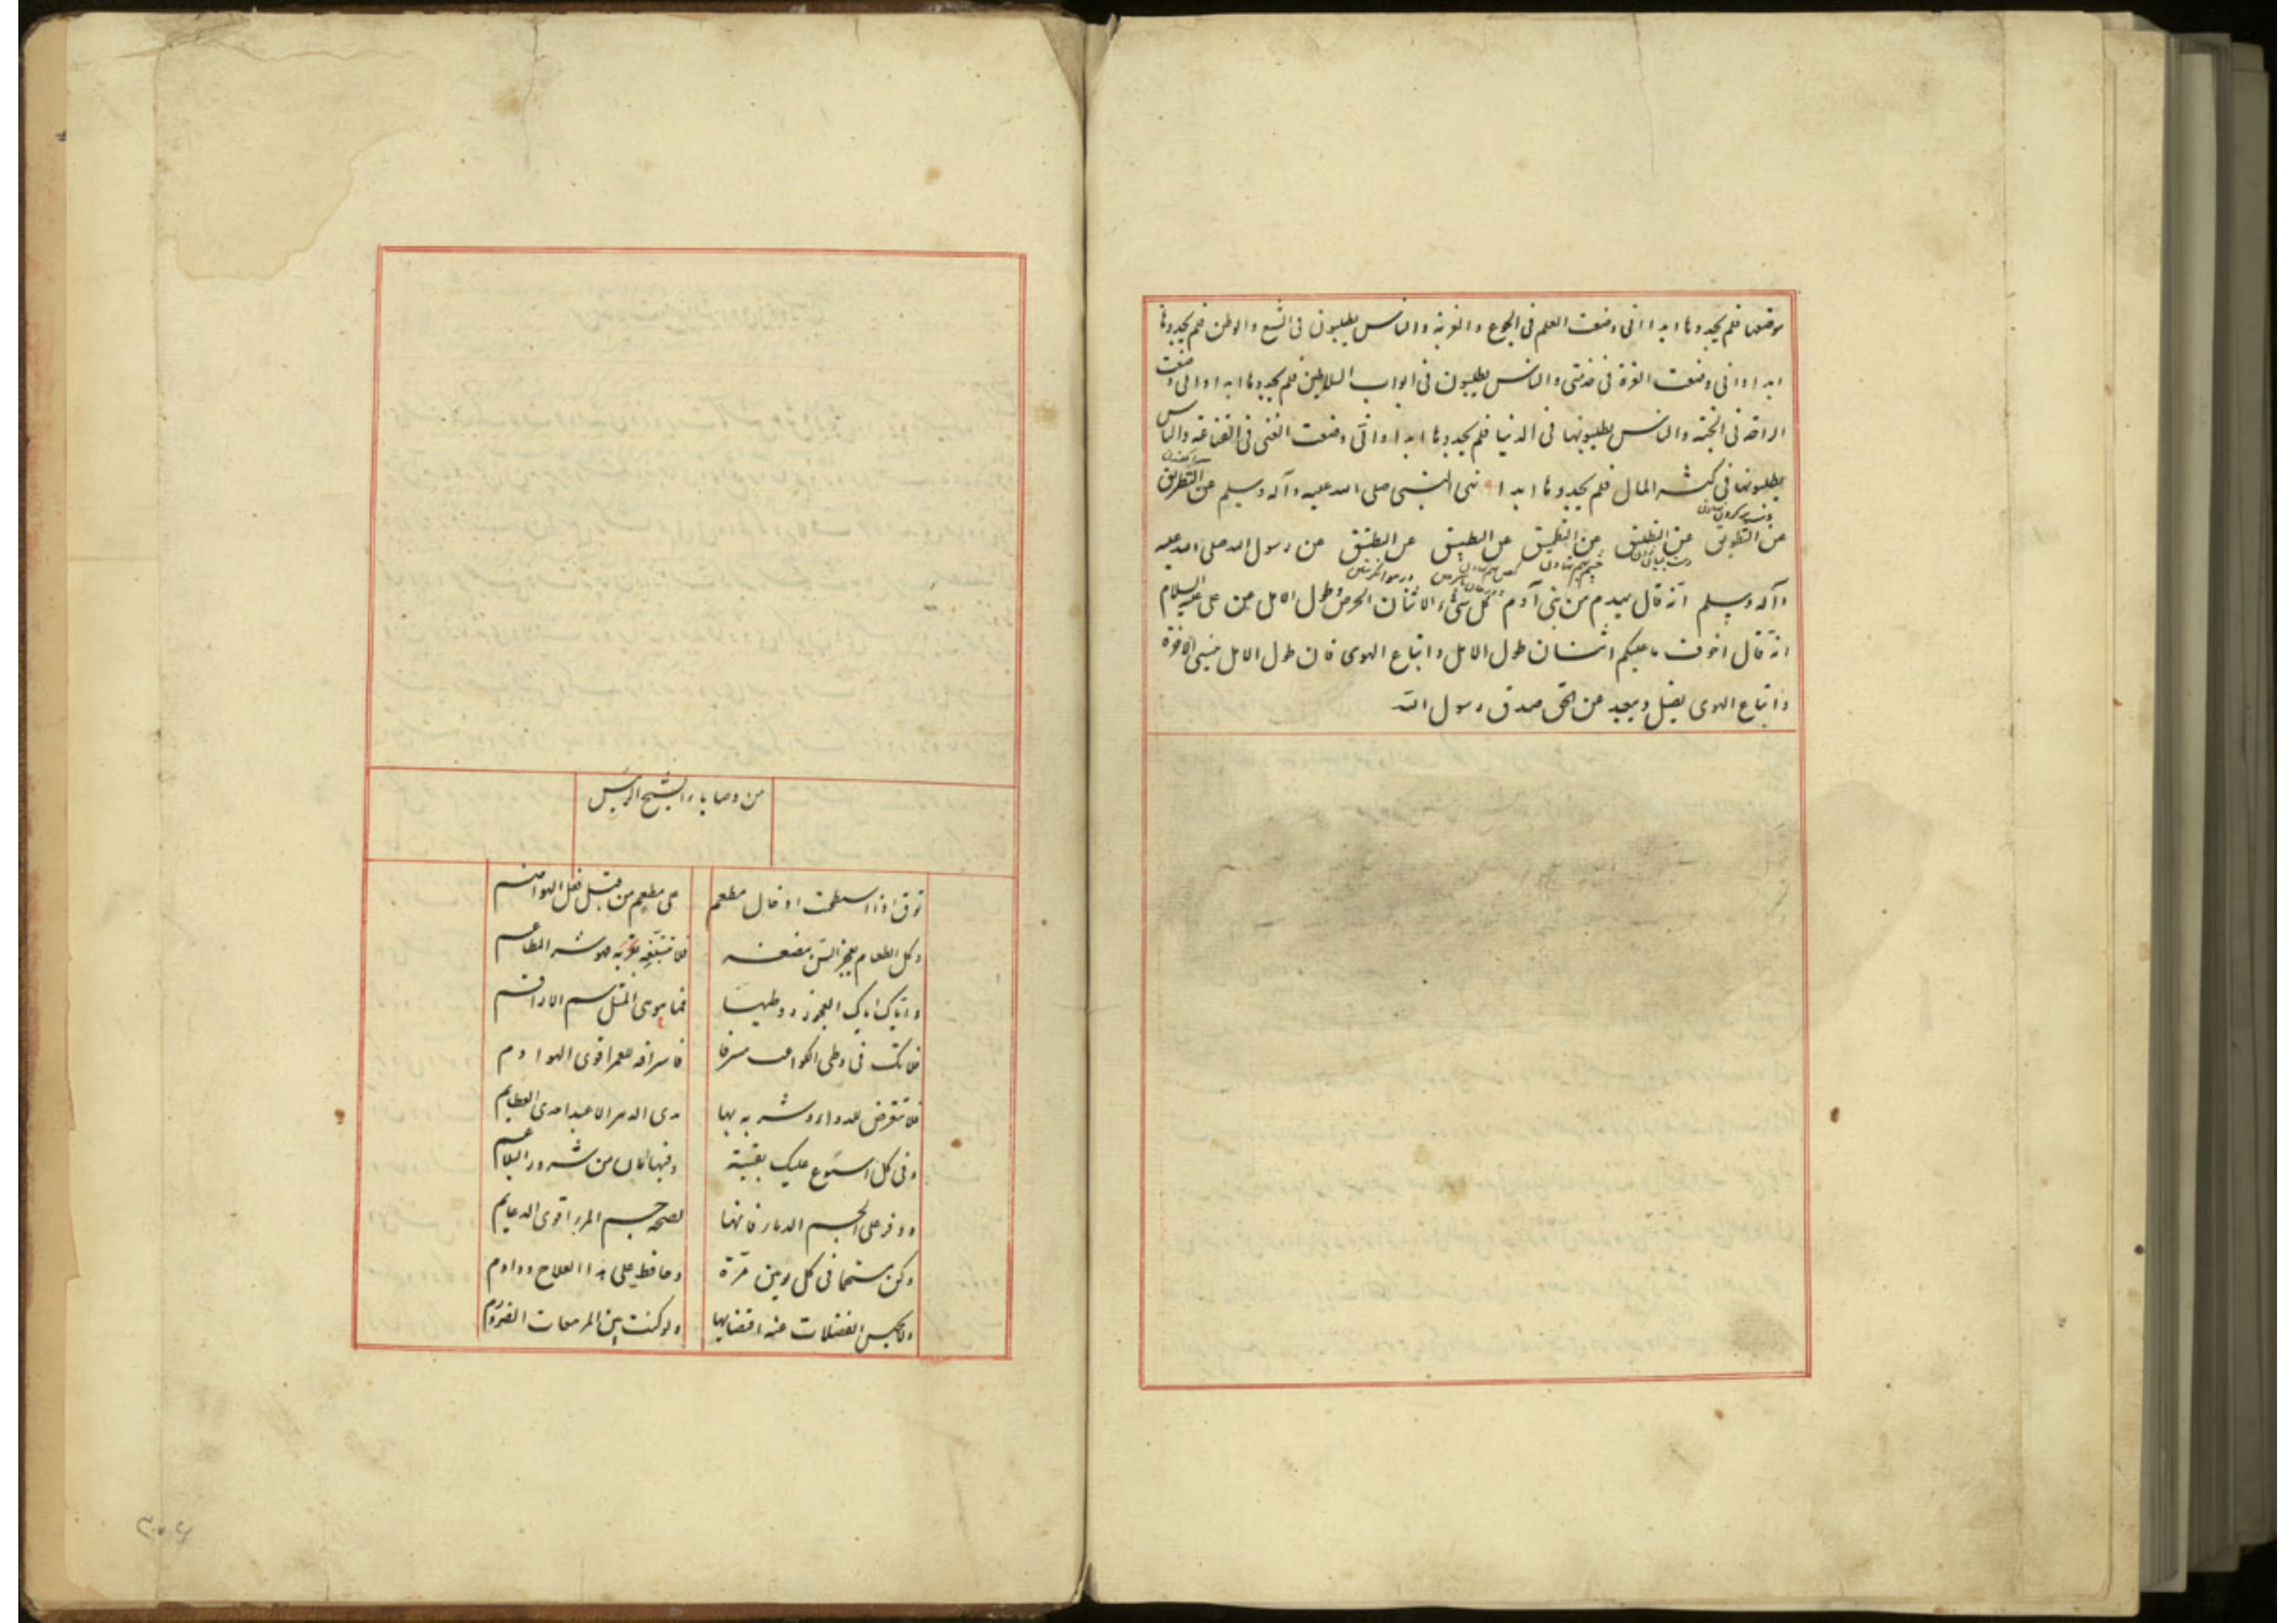 موضعها فلم يجدوها ابدا انى وضعت العلم فى الجوع والغربة والناس يطلبون فى الشبع والوطن فلم يجدوها
ابدا وانى وضعت العزة فى خدمتى والناس يطلبون فى ابواب السلاطين فلم يجدوها ابدا وانى وضعت
الراحة فى الجنة والناس يطلبونها فى الدنيا فلم يجدوها ابدا وانى وضعت الغنى فى القناعة والناس
يطلبونها فى كثرة المال فلم يجدوها ابدا ٩ نهى النبى صلى الله عليه وآله وسلم عن التطريق
عن التطويق عن التطليق عن التطبيق عن رسول الله صلى الله عليه
وآله وسلم انه قال يهدم من بنى آدم كل شىء الا اثنان الحرص وطول الامل من على عليه السلام
انه قال اخوف ما عليكم اثنان طول الامل واتباع الهوى فان طول الامل ينسى الآخرة
واتباع الهوى يضل ويبعد عن الحق صدق رسول الله
من وصاياء الشيخ الرئيس
توق اذا استطعت ادخال مطعم
على مطعم من قبل فعل الهواضم
وكل الطعام يعجز السن مضغه
فلا تبتلعه فهو شر المطاعم
واياك اياك العجوز ووطيها
فما هو الا مثل سم الاراقم
فلا تك فى وطى الكواعب مسرفا
فاسرافه للعمر اقوى الهوادم
فلا تتعرض للدواء وشربه بها
مدى الدهر الا عند احدى العظايم
وفى كل اسبوع عليك بقيئة
وفيها امان من شرور البلاغم
ووفر على الجسم الدماء فانها
لصحة جسم المرء اقوى الدعايم
وكن مستحما فى كل يومين مرة
وحافظ على هذا العلاج وداوم
ولا تحبس الفضلات عند اقتضايها
ولو كنت بين المرهفات الصوارم